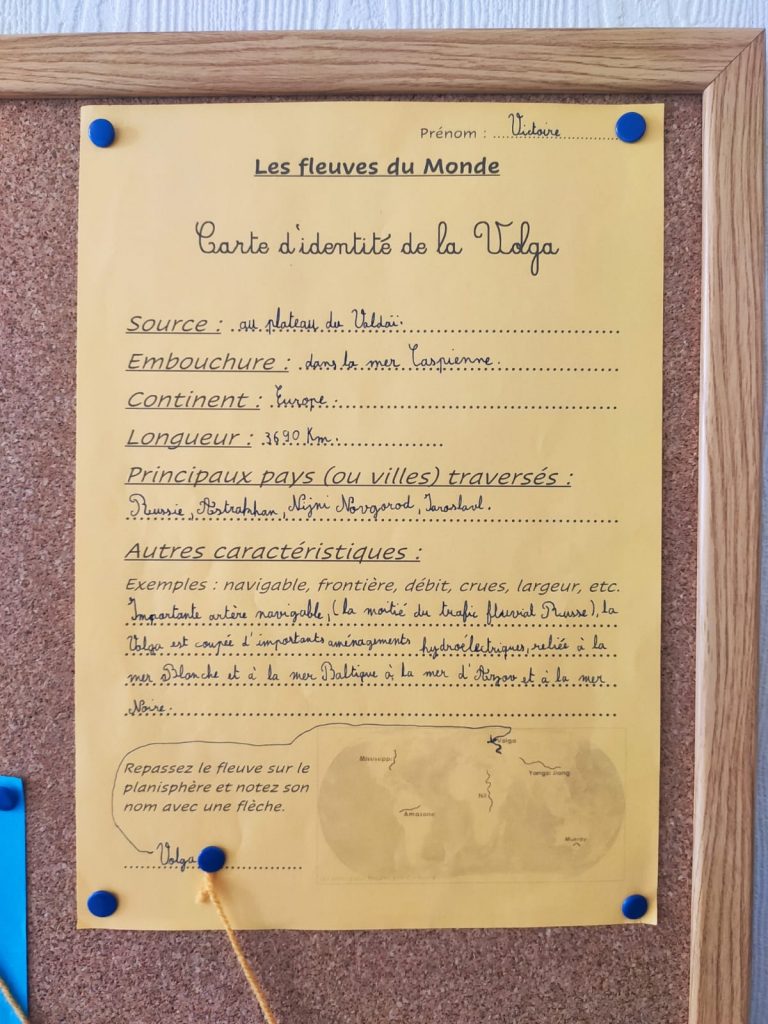 Prénom : Victoire
Les fleuves du Monde
Carte d'identité de la Volga
Source : au plateau du Valdaï.
Embouchure : dans la mer Caspienne.
Continent : Europe.
Longueur : 3690 Km.
Principaux pays (ou villes) traversés :
Russie, Astrakhan, Nijni Novgorod, Iaroslavl.
Autres caractéristiques :
Exemples : navigable, frontière, débit, crues, largeur, etc.
Importante artère navigable, (la moitié du trafic fluvial Russe), la
Volga est coupée d'importants aménagements hydroélectriques, reliée à la
mer Blanche et à la mer Baltique à la mer d'Azov et à la mer
Noire.
Repassez le fleuve sur le
planisphère et notez son
nom avec une flèche.
Volga
Mississippi
Volga
Yangzi Jiang
Nil
Amazone
Murray